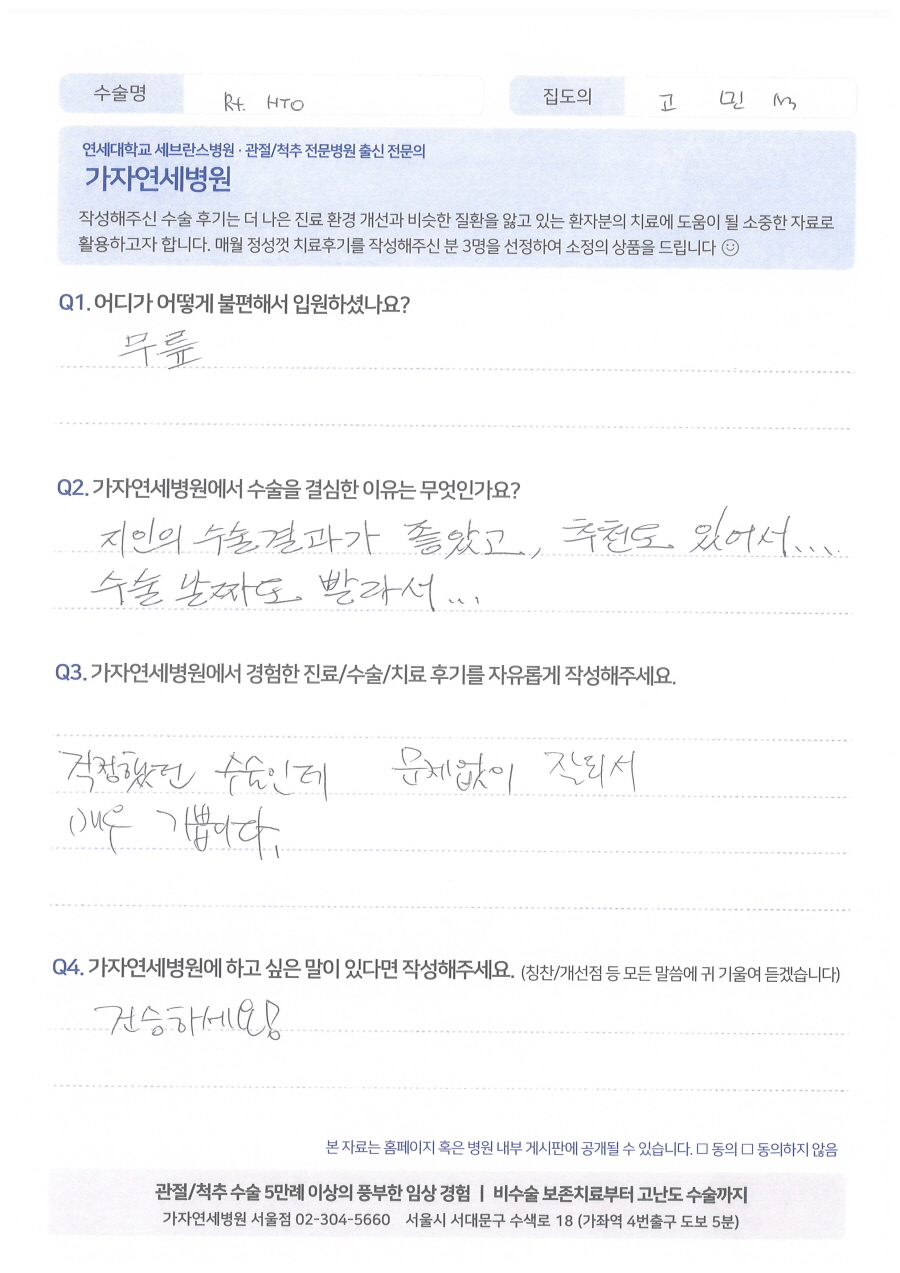 수술명 Rt. HTO 집도의 고 민
연세대학교 세브란스병원 · 관절/척추 전문병원 출신 전문의
가자연세병원
작성해주신 수술 후기는 더 나은 진료 환경 개선과 비슷한 질환을 앓고 있는 환자분의 치료에 도움이 될 소중한 자료로
활용하고자 합니다. 매월 정성껏 치료후기를 작성해주신 분 3명을 선정하여 소정의 상품을 드립니다 ☺
Q1. 어디가 어떻게 불편해서 입원하셨나요?
무릎
Q2. 가자연세병원에서 수술을 결심한 이유는 무엇인가요?
지인의 수술결과가 좋았고, 추천도 있어서...
수술 날짜도 빨라서...
Q3. 가자연세병원에서 경험한 진료/수술/치료 후기를 자유롭게 작성해주세요.
걱정했던 수술인데 문제없이 잘되서
매우 기쁩니다.
Q4. 가자연세병원에 하고 싶은 말이 있다면 작성해주세요. (칭찬/개선점 등 모든 말씀에 귀 기울여 듣겠습니다)
건승하세요!
본 자료는 홈페이지 혹은 병원 내부 게시판에 공개될 수 있습니다. □ 동의 □ 동의하지 않음
관절/척추 수술 5만례 이상의 풍부한 임상 경험 | 비수술 보존치료부터 고난도 수술까지
가자연세병원 서울점 02-304-5660 서울시 서대문구 수색로 18 (가좌역 4번출구 도보 5분)